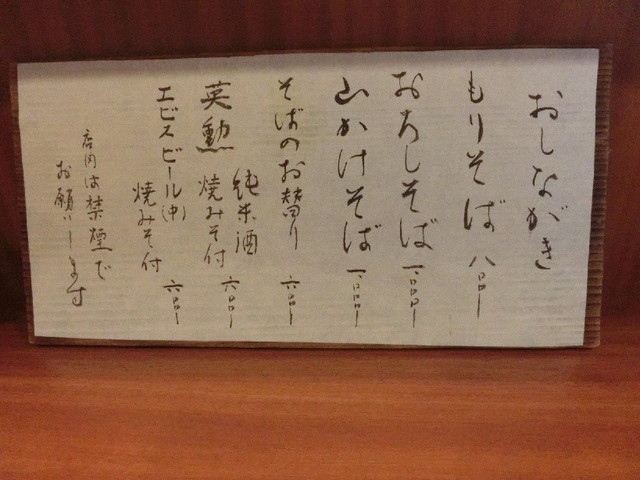 おしながき
もりそば 八〇〇ー
おろしそば 一、〇〇〇ー
山かけそば 一、〇〇〇ー
そばのお替り 六〇〇ー
英勲 純米酒
焼みそ付 六〇〇ー
エビスビール(中)
焼みそ付 六〇〇ー
店内は禁煙で
お願いします